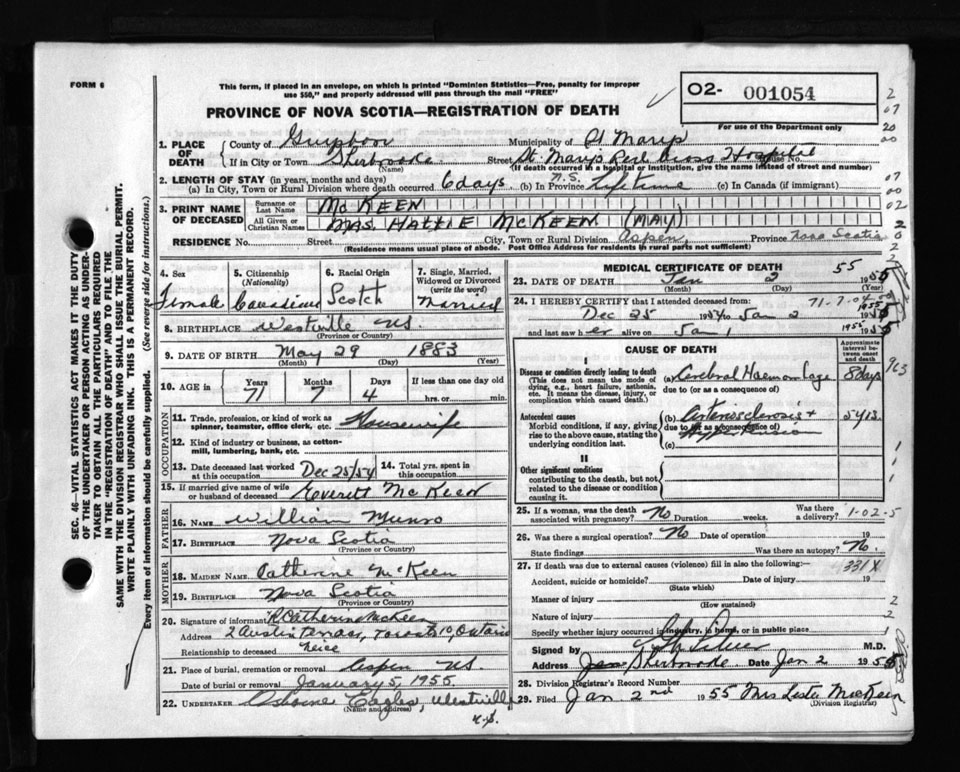 FORM 6
This form, if placed in an envelope, on which is printed "Dominion Statistics—Free, penalty for improper
use $50," and properly addressed will pass through the mail "FREE"
PROVINCE OF NOVA SCOTIA—REGISTRATION OF DEATH
O2- 001054
For use of the Department only
1. PLACE OF DEATH County of Guysboro Municipality of St Marys
If in City or Town Sherbrooke (Name) Street St. Mary's Red Cross Hospital House No.
(If death occurred in a hospital or institution, give the name instead of street and number)
2. LENGTH OF STAY (in years, months and days)
(a) In City, Town or Rural Division where death occurred 6 days (b) In Province N.S. Lifetime (c) In Canada (if immigrant)
3. PRINT NAME OF DECEASED Surname or Last Name McKEEN
All Given or Christian Names MRS HATTIE McKEEN (MAY)
RESIDENCE No. Street City, Town or Rural Division Aspen Province Nova Scotia
(Residence means usual place of abode. Post Office Address for residents in rural parts not sufficient)
4. Sex Female
5. Citizenship (Nationality) Canadian
6. Racial Origin Scotch
7. Single, Married, Widowed or Divorced (write the word) Married
8. BIRTHPLACE Westville NS.
(Province or Country)
9. DATE OF BIRTH May 29 1883
(Month) (Day) (Year)
10. AGE in Years 71 Months 7 Days 4 If less than one day old hrs. or min.
OCCUPATION
11. Trade, profession or kind of work as spinner, teamster, office clerk, etc. Housewife
12. Kind of industry or business, as cotton-mill, lumbering, bank, etc.
13. Date deceased last worked at this occupation Dec 25/54 14. Total yrs. spent in this occupation
15. If married give name of wife or husband of deceased Everett McKeen
FATHER
16. NAME William Munro
17. BIRTHPLACE Nova Scotia
(Province or Country)
MOTHER
18. MAIDEN NAME Catherine McKeen
19. BIRTHPLACE Nova Scotia
(Province or Country)
20. Signature of informant R Catherine McKeen
Address 2 Austin Terrace, Toronto 10, Ontario
Relationship to deceased neice
21. Place of burial, cremation or removal Aspen NS
Date of burial or removal January 5, 1955
22. UNDERTAKER Osborne Eagles, Westville
(Name and address) N.S.
MEDICAL CERTIFICATE OF DEATH
23. DATE OF DEATH Jan 2 1955
(Month) (Day)
24. I HEREBY CERTIFY that I attended deceased from:
Dec 25 1954 to Jan 2 1955
and last saw her alive on Jan 1 1955
CAUSE OF DEATH
Approximate interval between onset and death
I
Disease or condition directly leading to death
(This does not mean the mode of dying, e.g., heart failure, asthenia, etc. It means the disease, injury, or complication which caused death.)
(a) Cerebral Haemorrhage 8 days
due to (or as a consequence of)
Antecedent causes
Morbid conditions, if any, giving rise to the above cause, stating the underlying condition last.
(b) Arteriosclerosis +
due to (or as a consequence of)
Hypertension
(c)
II
Other significant conditions
contributing to the death, but not related to the disease or condition causing it.
25. If a woman, was the death associated with pregnancy? No Duration weeks. Was there a delivery?
26. Was there a surgical operation? No Date of operation 19
State findings Was there an autopsy? No.
27. If death was due to external causes (violence) fill in also the following:— 331X
Accident, suicide or homicide? Date of injury 19
(State which)
Manner of injury
(How sustained)
Nature of injury
Specify whether injury occurred in industry, in home, or in public place
Signed by M.D.
Address Sherbrooke Date Jan 2 1955
28. Division Registrar's Record Number
29. Filed Jan 2nd 1955 Mrs Lester McKeen
(Division Registrar)
SEC. 46—VITAL STATISTICS ACT MAKES IT THE DUTY
OF THE UNDERTAKER OR PERSON ACTING AS UNDER-
TAKER TO OBTAIN ALL THE PARTICULARS REQUIRED
IN THE "REGISTRATION OF DEATH" AND TO FILE THE
SAME WITH THE DIVISION REGISTRAR WHO SHALL ISSUE THE BURIAL PERMIT.
WRITE PLAINLY WITH UNFADING INK. THIS IS A PERMANENT RECORD.
Every item of information should be carefully supplied. (See reverse side for instructions.)